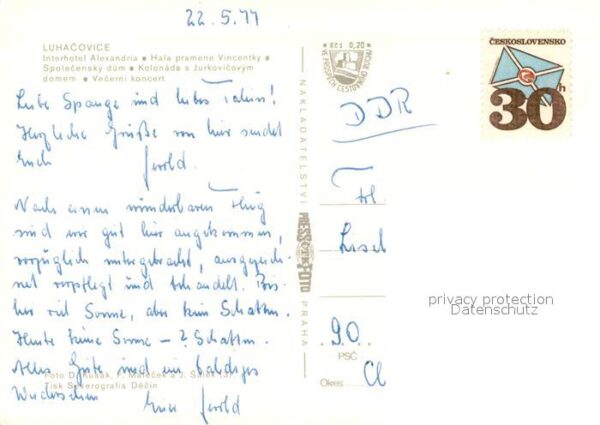 22.5.77
LUHAČOVICE
Interhotel Alexandria • Hala pramene Vincentky •
Společenský dům • Kolonáda s Jurkovičovým
domem • Večerní koncert
Liebe und liebes
Herzliche Grüße von hier sendet
Euch
Nach einem wunderbaren Flug
sind wir gut hier angekommen,
vorzüglich untergebracht, ausgezeich-
net verpflegt und behandelt. Bis-
her viel Sonne, aber kein Schatten.
Heute keine Sonne – ? Schatten.
Alles Gute und ein baldiges
Wiedersehen Euer
Foto D. Kusák, F. Maleček a J. Šálek (3)
Tisk Severografia Děčín
NAKLADATELSTVÍ
PRESSFOTO
PRAHA
Kčs 0,20
VE PROSPĚCH CESTOVNÍHO RUCHU
ČESKOSLOVENSKO
30h
DDR
Frl.
90
PSČ
Okres:
privacy protection
Datenschutz